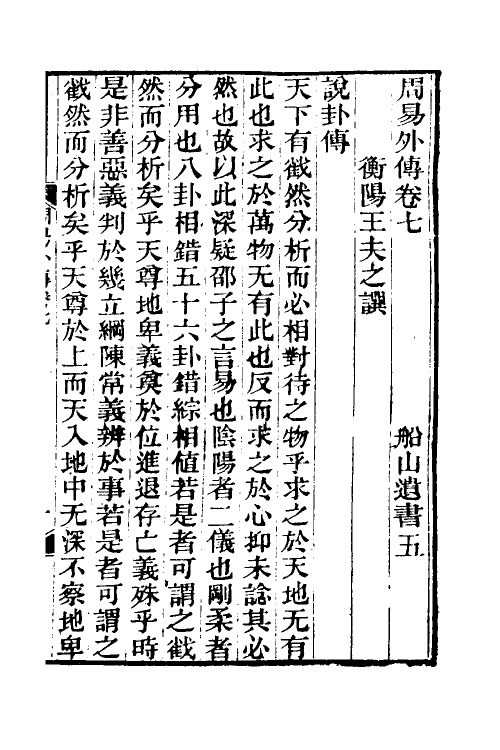 周易外傳卷七　船山遺書五
衡陽王夫之譔
說卦傳
天下有截然分析而必相對待之物乎求之於天地无有
此也求之於萬物无有此也反而求之於心抑未諗其必
然也故以此深疑邵子之言易也陰陽者二儀也剛柔者
分用也八卦相錯五十六卦錯綜相値若是者可謂之截
然而分析矣乎天尊地卑義奠於位進退存亡義殊乎時
是非善惡義判於幾立綱陳常義辨於事若是者可謂之
截然而分析矣乎天尊於上而天入地中无深不察地卑